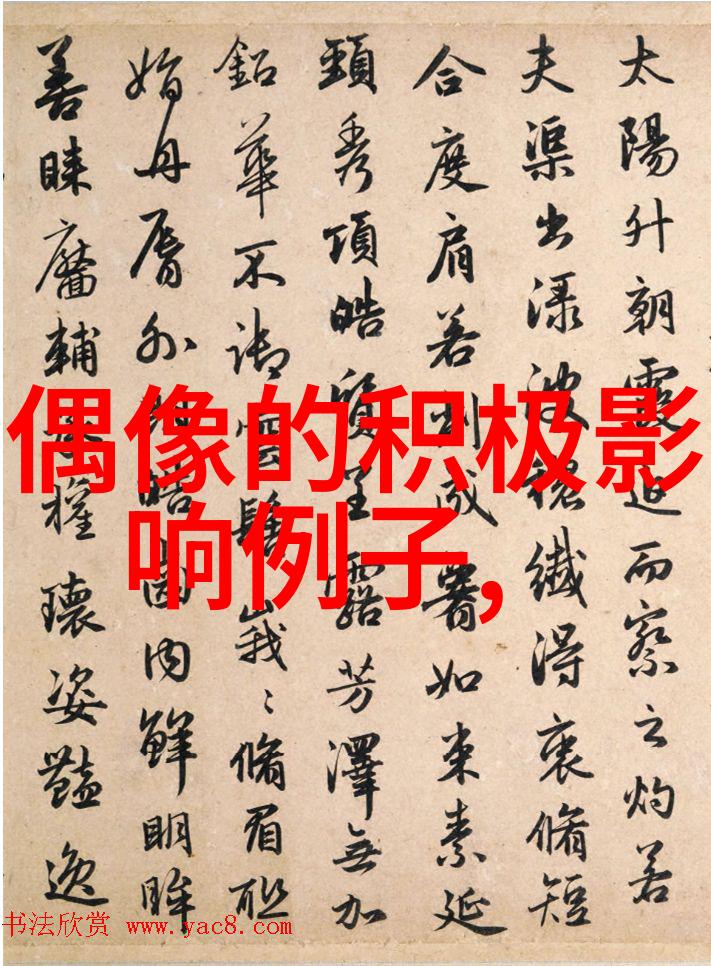 太陽升朝霞迫而察之灼若
夫渠出渌波穠纖得衷脩短
合度肩若削成如束素延
頸秀項皓質呈露芳澤無加
鉛華不御雲髻峩〻脩眉聯
娟丹脣外朗皓齒内鮮明眸
善睞靨輔承權瓌姿豔逸
偶像的积极影
响例子,
书法欣赏 www.yac8.com